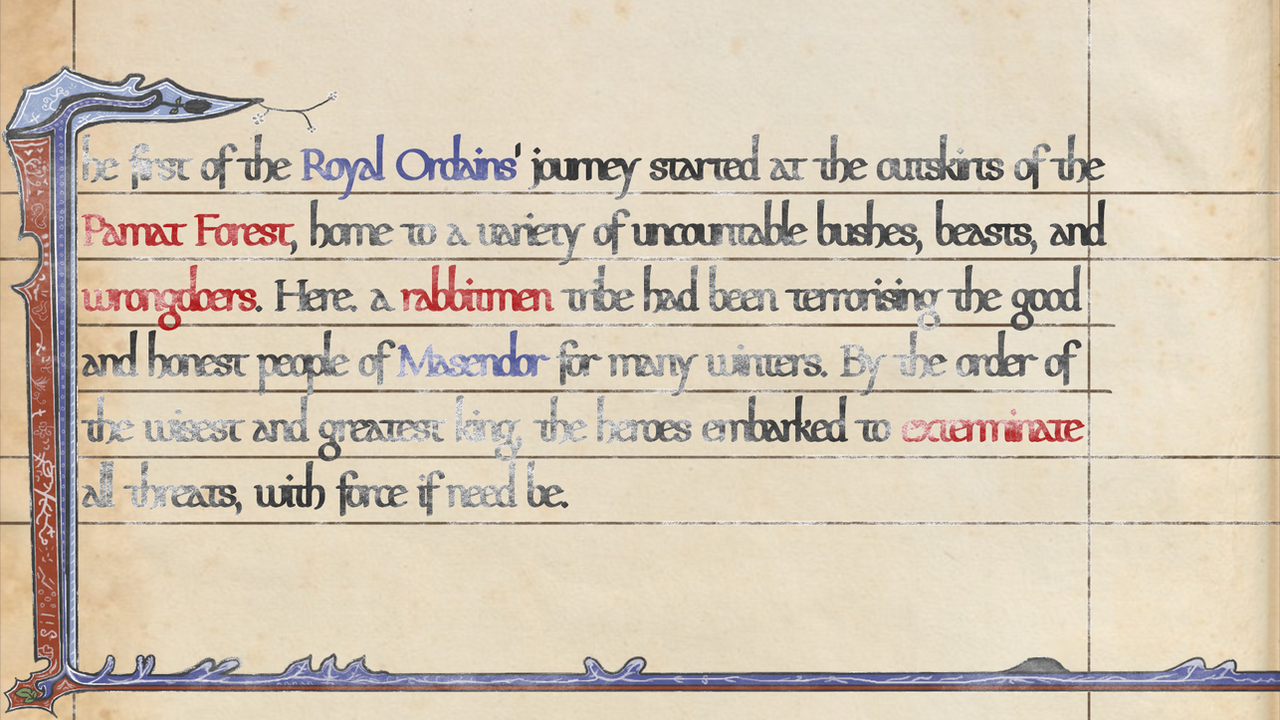 The first of the Royal Ordains' journey started at the outskirts of the
Pamat Forest, home to a variety of uncountable bushes, beasts, and
wrongdoers. Here, a rabbitmen tribe had been terrorising the good
and honest people of Masendor for many winters. By the order of
the wisest and greatest king, the heroes embarked to exterminate
all threats, with force if need be.